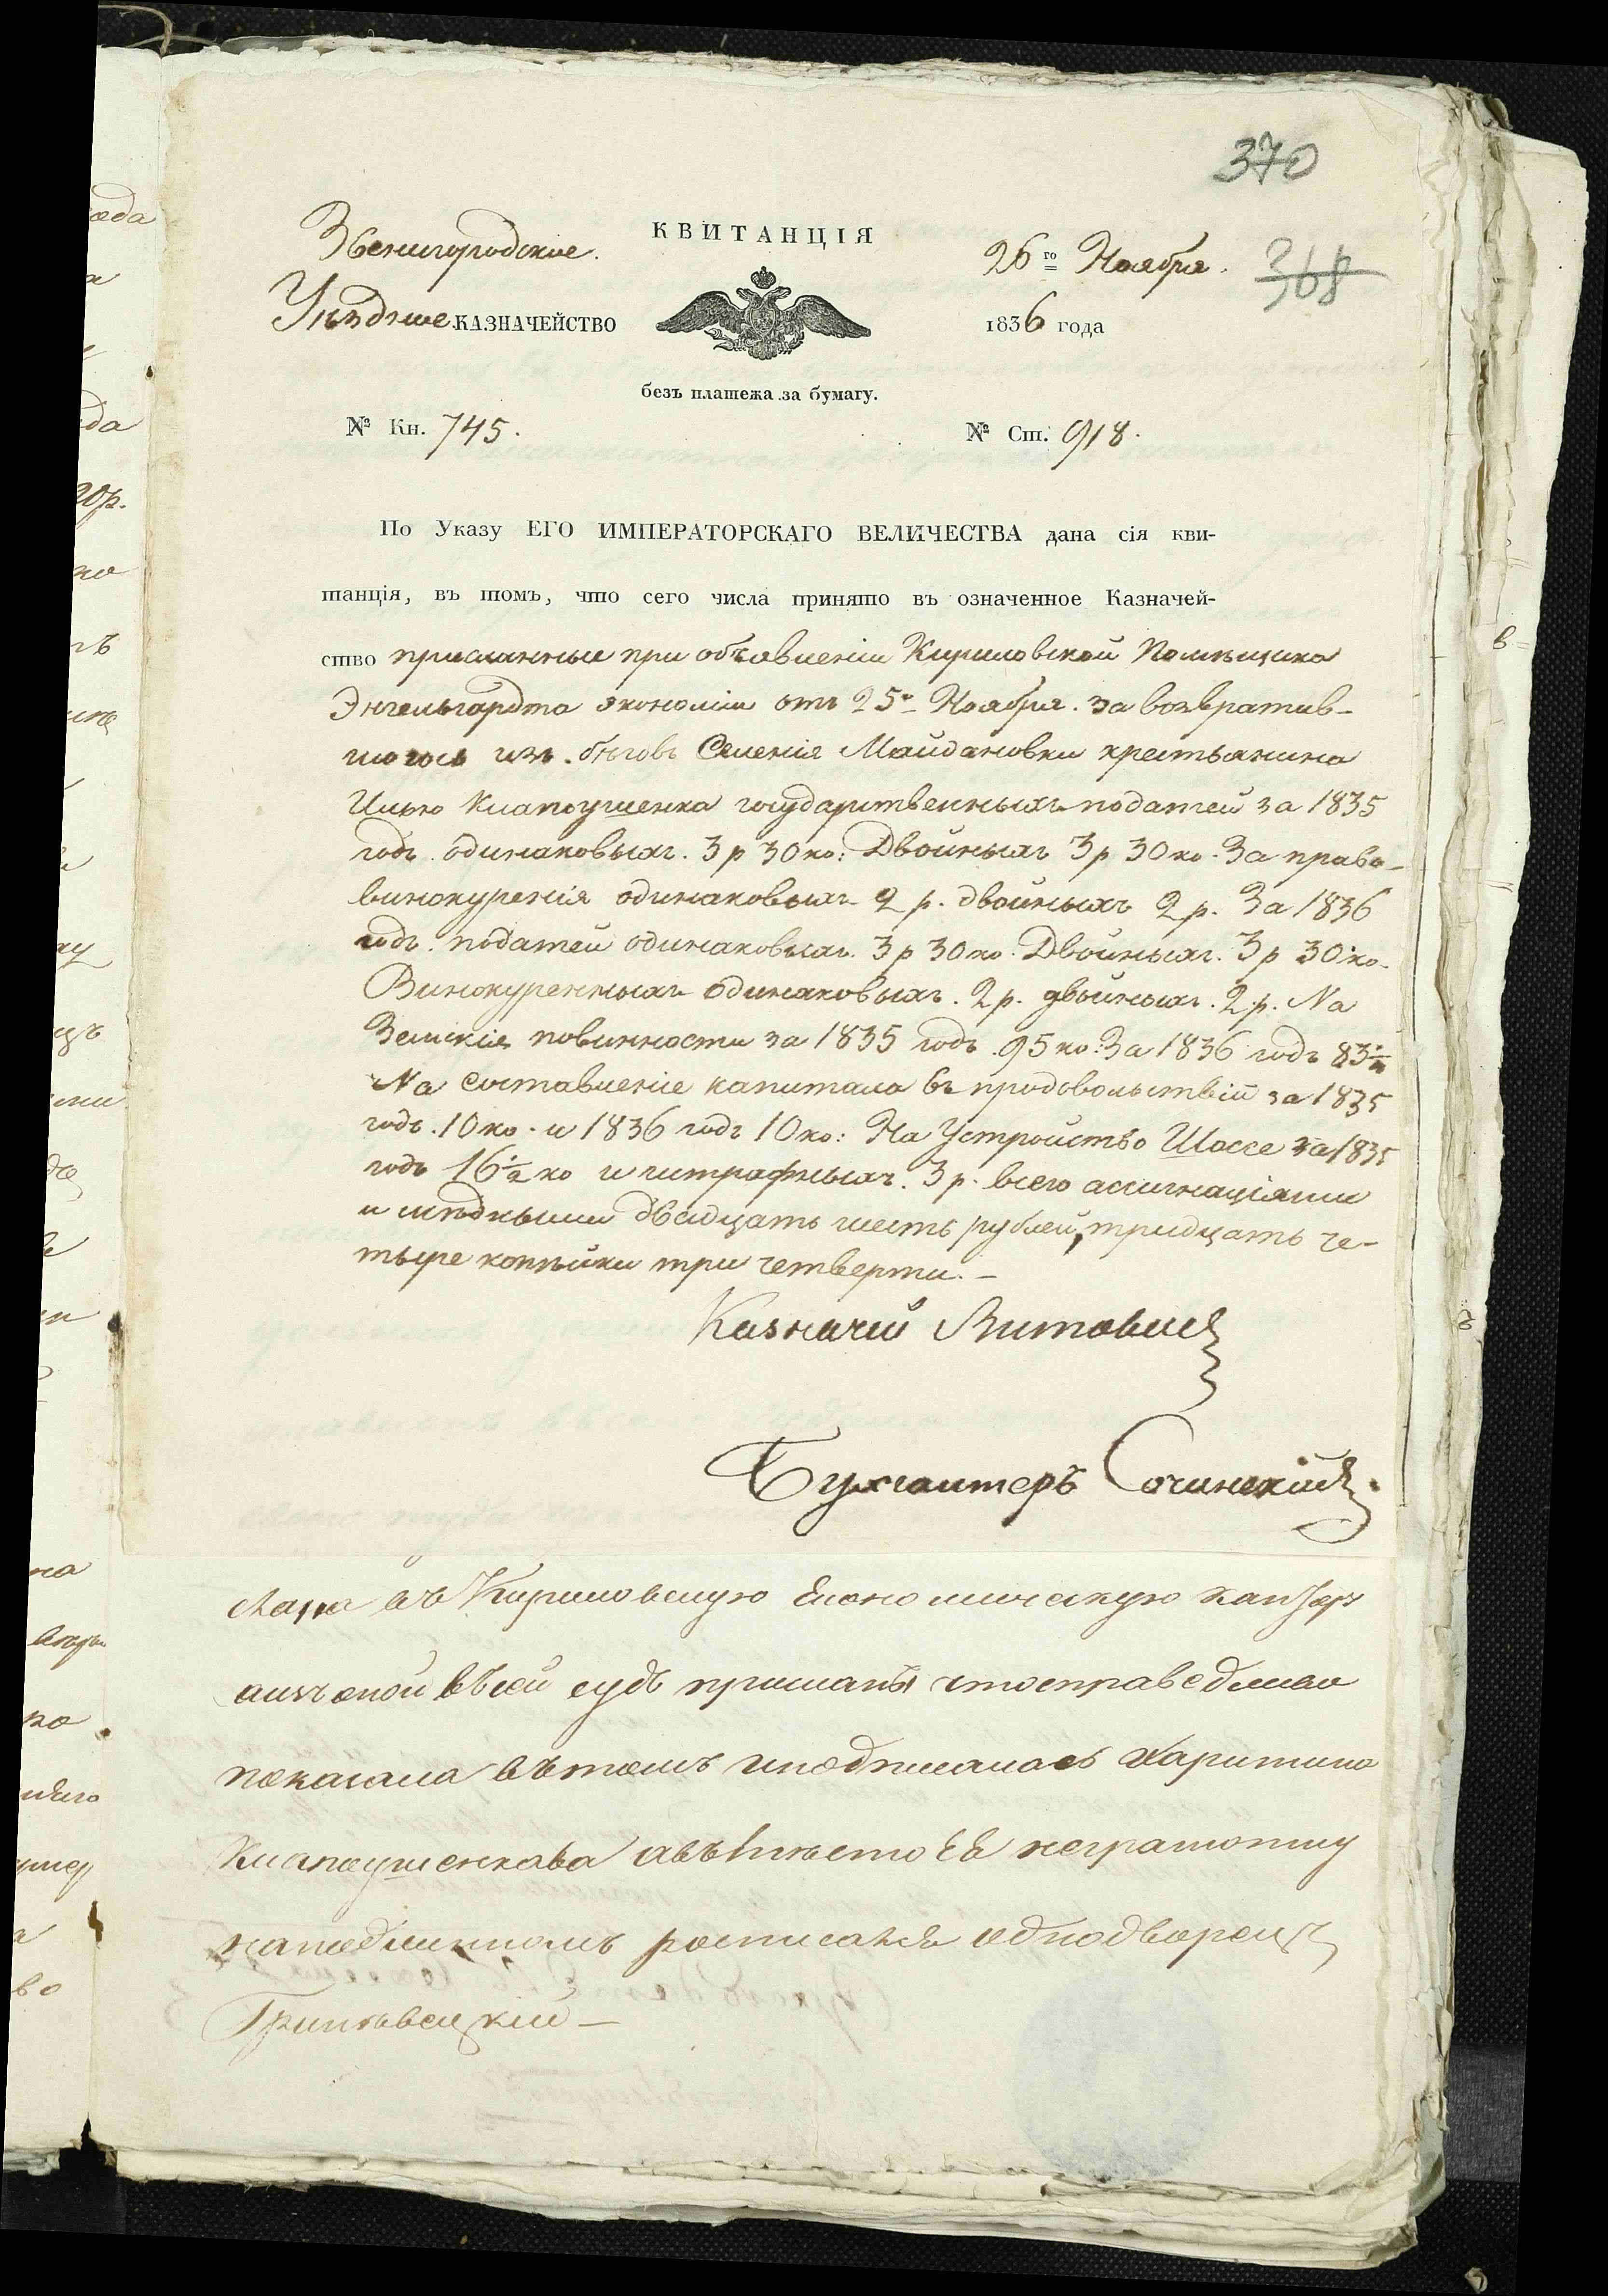 370
КВИТАНЦІЯ
Звенигородское.
26го Ноября.
368
Уѣздное КАЗНАЧЕЙСТВО
1836 года
безъ платежа за бумагу.
№ Кн. 745.
№ Ст. 918.
По Указу ЕГО ИМПЕРАТОРСКАГО ВЕЛИЧЕСТВА дана сія кви-
танція, въ томъ, что сего числа принято въ означенное Казначей-
ство присланные при объявленіи Кириловской Помѣщика
Энгельгардта экономіи отъ 25го Ноября. за возвратив-
шагось изъ бѣговъ Селенія Майдановки крестьянина
Илью Клапоушенка государственныхъ податей за 1835
годъ одинаковыхъ. 3 р 30 ко: Двойныхъ 3 р 30 ко. За право-
винокуренія одинаковыхъ 2 р. двойныхъ 2 р. За 1836
годъ податей одинаковыхъ. 3 р 30 ко. Двойныхъ. 3 р 30 ко.
Винокуренныхъ одинаковыхъ. 2 р. двойныхъ. 2 р. На
Земскія повинности за 1835 годъ 95 ко: За 1836 годъ 83
На составленіе капитала въ продовольствій за 1835
годъ. 10 ко. и 1836 годъ 10 ко: На Устройство Шоссе за 1835
годъ 16½ ко и штрафныхъ. 3 р. всего ассигнаціями
и мѣдными двадцать шесть рублей, тридцать че-
тыре копѣйки три четверти.-
Казначей
Бухгалтеръ Сочинскій
въ Кириловскую Економическую
сей судъ что справедливо
показала въ томъ и подписалась Харитина
Клапоушенкова а вмѣсто её неграмотну
росписался однодворецъ